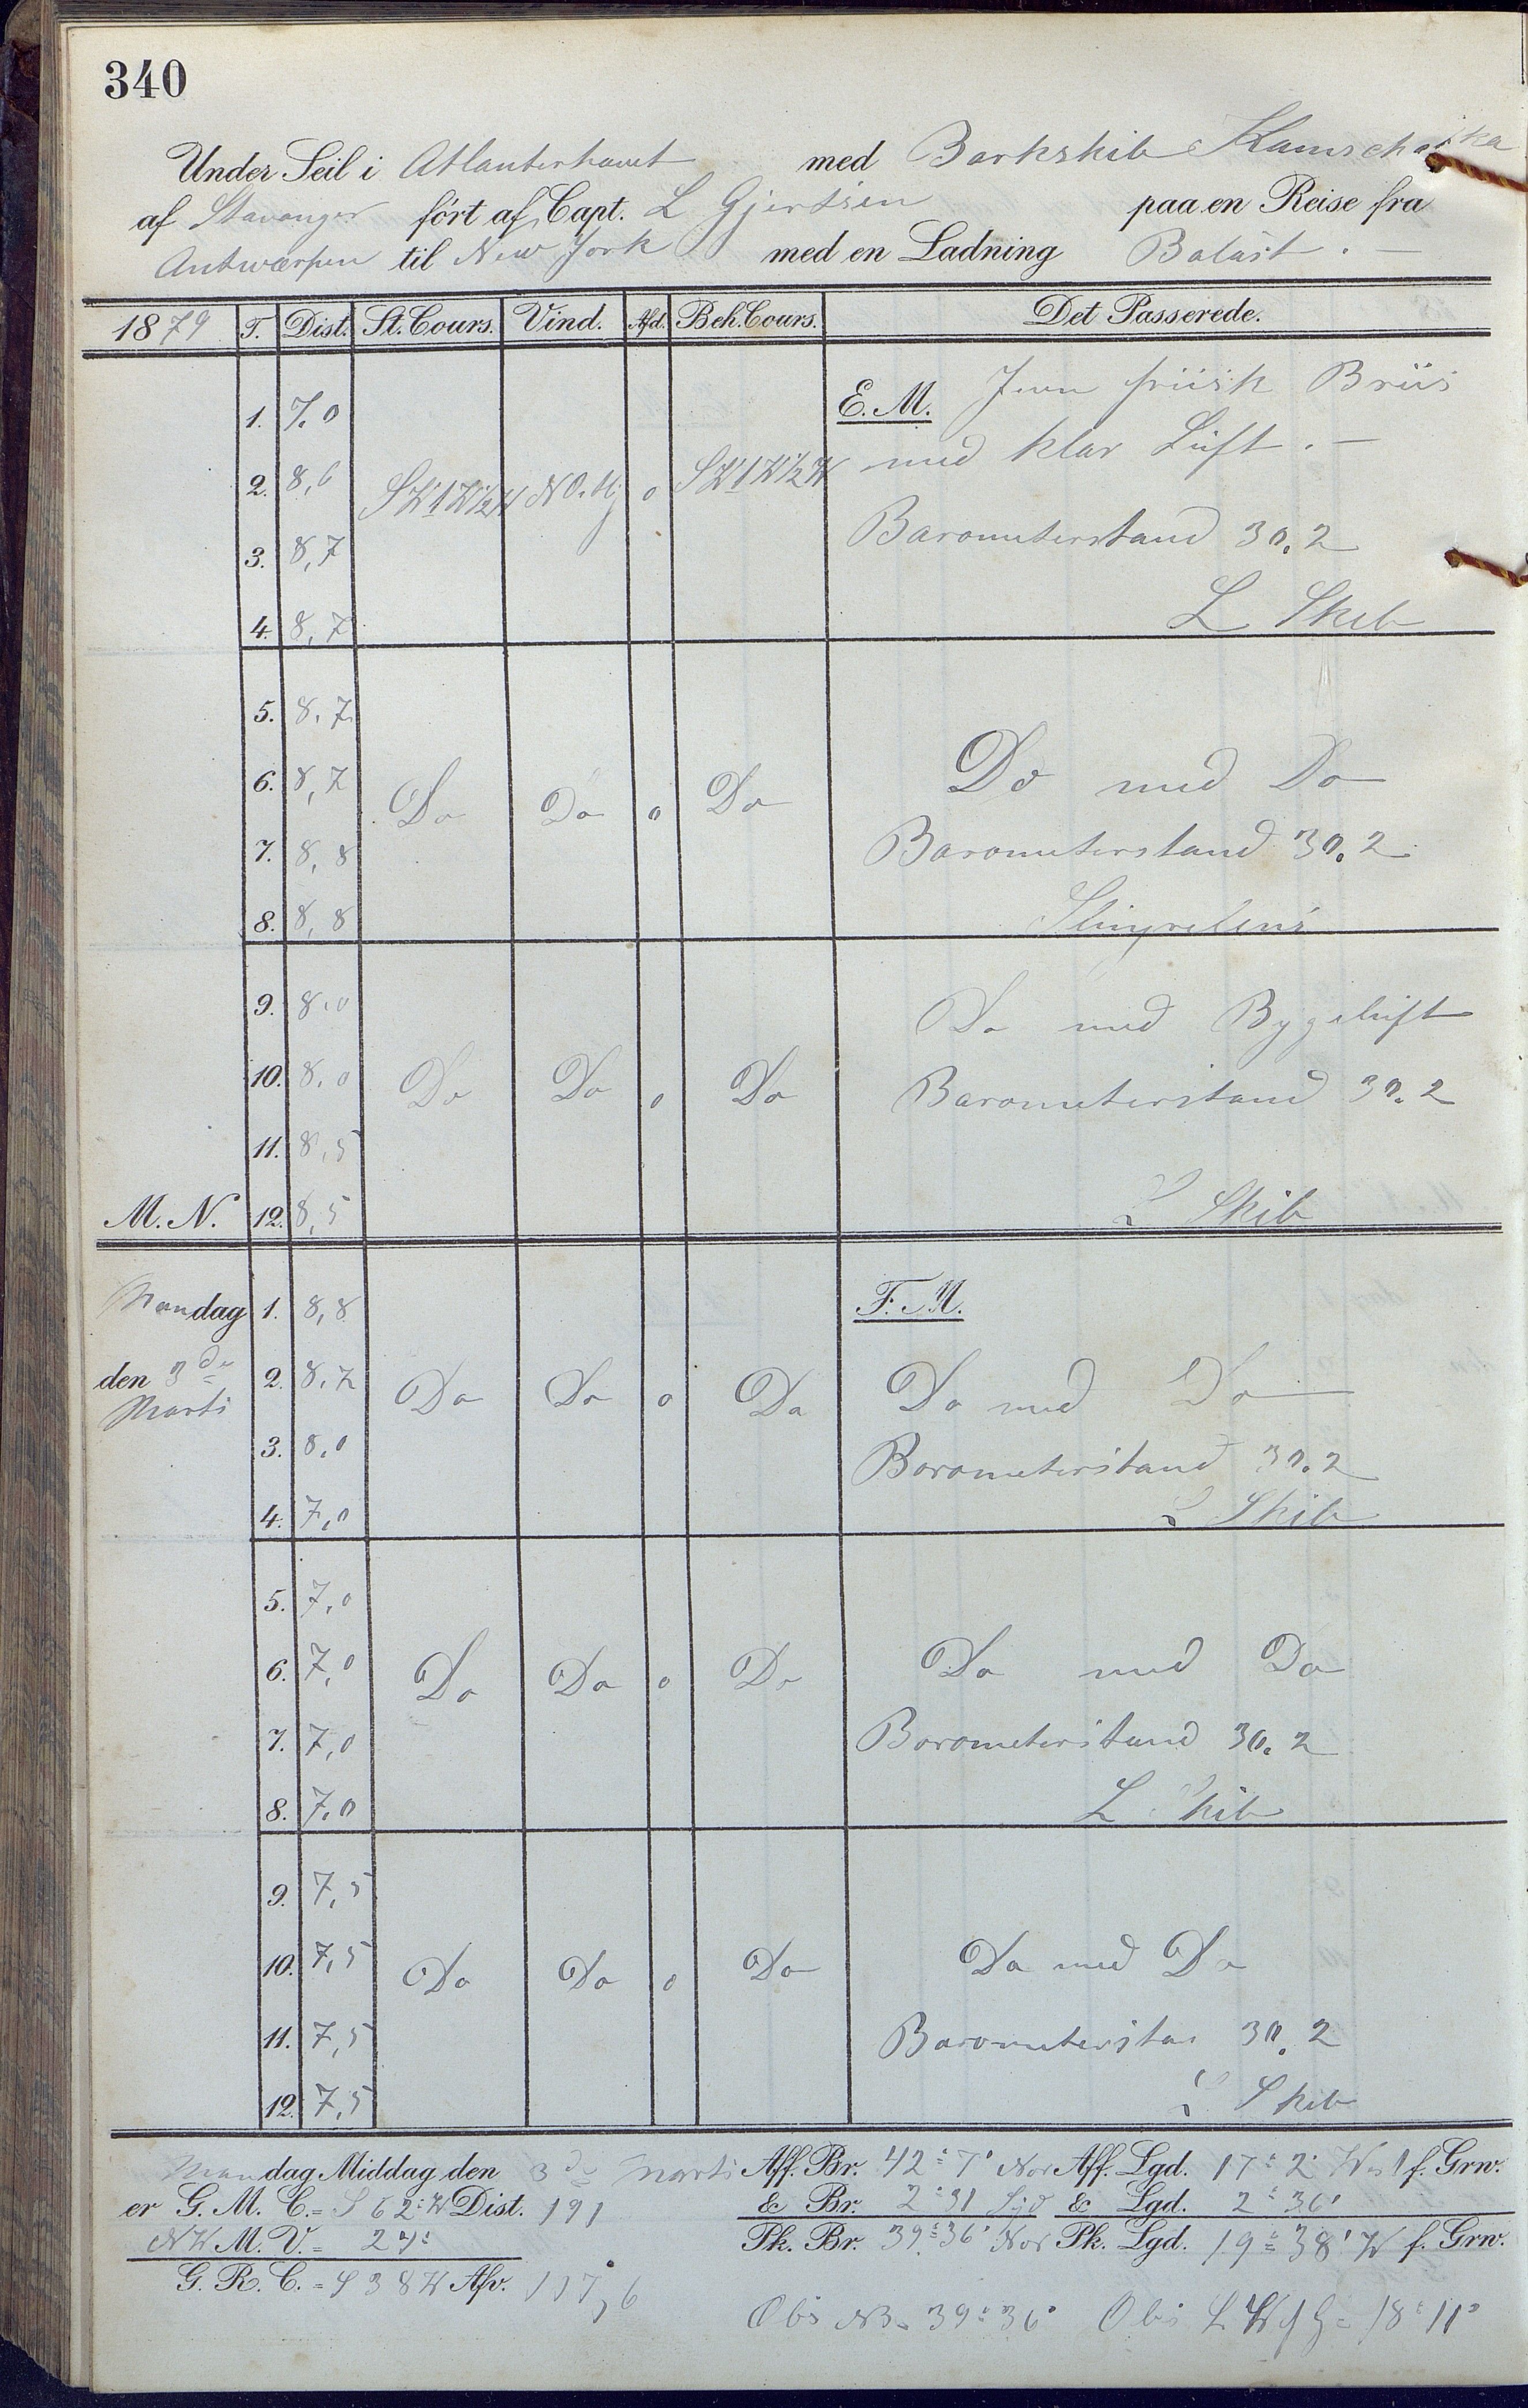 340
Under Seil i Atlanterhavet med Barkskib Kamschatka
af Stavanger fört af Capt. L Gjertsen paa en Reise fra
Antwerpen til New York med en Ladning Balast . —
1879 T. Dist. St. Cours. Vind. Afd. Beh. Cours. Det Passerede.
E. M. Jevn friisk Briis
1. 7,0
med klar Luft . —
2. 8,6 SWtW½W NO.lig 0 SWtW½W
Barometerstand 30.2
3. 8,7
L Skib
4. 8,7
5. 8,7
6. 8,7 Do Do 0 Do Do med Do
7. 8,8 Barometerstand 30.2
8. 8,8
9. 8,0 Do med Bygeluft
10. 8,0 Do Do 0 Do Barometerstand 30.2
11. 8,5
M. N. 12. 8,5 L Skib
Mandag 1. 8,8 F. M.
den 3de 2. 8,7 Do Do 0 Do Do med Do
Marts
3. 8,0 Barometerstand 30.2
4. 7,0 L Skib
5. 7,0
6. 7,0 Do Do 0 Do Do med Do
7. 7,0 Barometerstand 30.2
8. 7,0 L Skib
9. 7,5
10. 7,5 Do Do 0 Do Do med Do
11. 7,5 Barometerstan 30.2
12. 7,5 L Skib
Mandag Middag den 3de Marts Aff. Br. 42° 7' Nor Aff. Lgd. 17° 2' West f. Grw.
er G. M. C. = S 62° W Dist. 191 & Br. 2° 31 Syd & Lgd. 2° 36'
NW M. V. = 24° Pk. Br. 39° 36' Nor Pk. Lgd. 19° 38' W f. Grw.
G. R. C. = S 38 W Afv. 117,6
Obs NB. 39° 36' Obs L W f G = 18° 11'